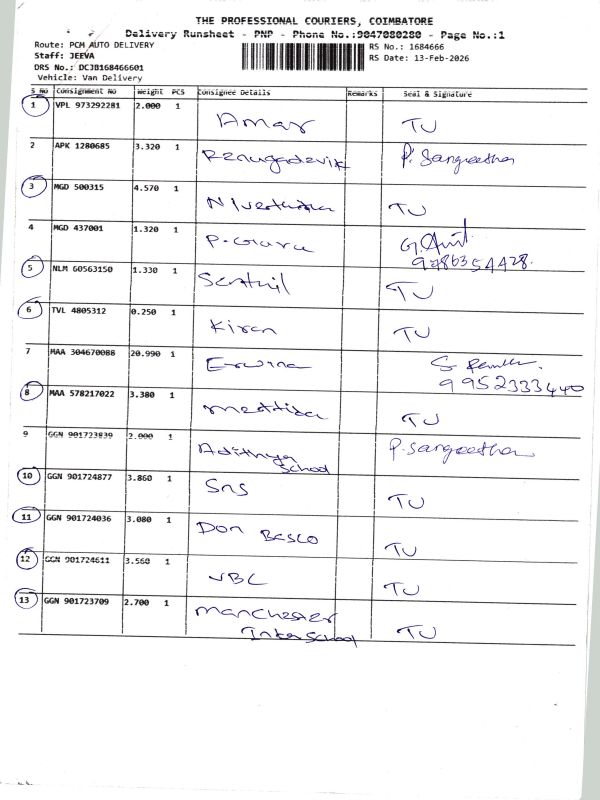 THE PROFESSIONAL COURIERS, COIMBATORE
Delivery Runsheet - PNP - Phone No.:9047080280 - Page No.:1
Route: PCM AUTO DELIVERY
RS No.: 1684666
Staff: JEEVA
RS Date: 13-Feb-2026
DRS No.: DCJB168466601
Vehicle: Van Delivery
S No Consignment No Weight PCS Consignee Details Remarks Seal & Signature
1 VPL 973292281 2.000 1
Amar TU
2 APK 1280685 3.320 1
Renugadevik P. Sangeetha
3 MGD 500315 4.570 1
TU
4 MGD 437001 1.320 1
9786354428.
5 NLM 60563150 1.330 1
Senthil TU
6 TVL 4805312 0.250 1
Kiran TU
7 MAA 304670088 20.990 1
9952333440
8 MAA 578217022 3.380 1
TU
9 GGN 901723839 2.000 1
Adithya School P. Sangeetha
10 GGN 901724877 3.860 1
SNS TU
11 GGN 901724036 3.080 1
Don Bosco TU
12 GGN 901724611 3.560 1
VBC TU
13 GGN 901723709 2.700 1
Manchester
Inter School TU